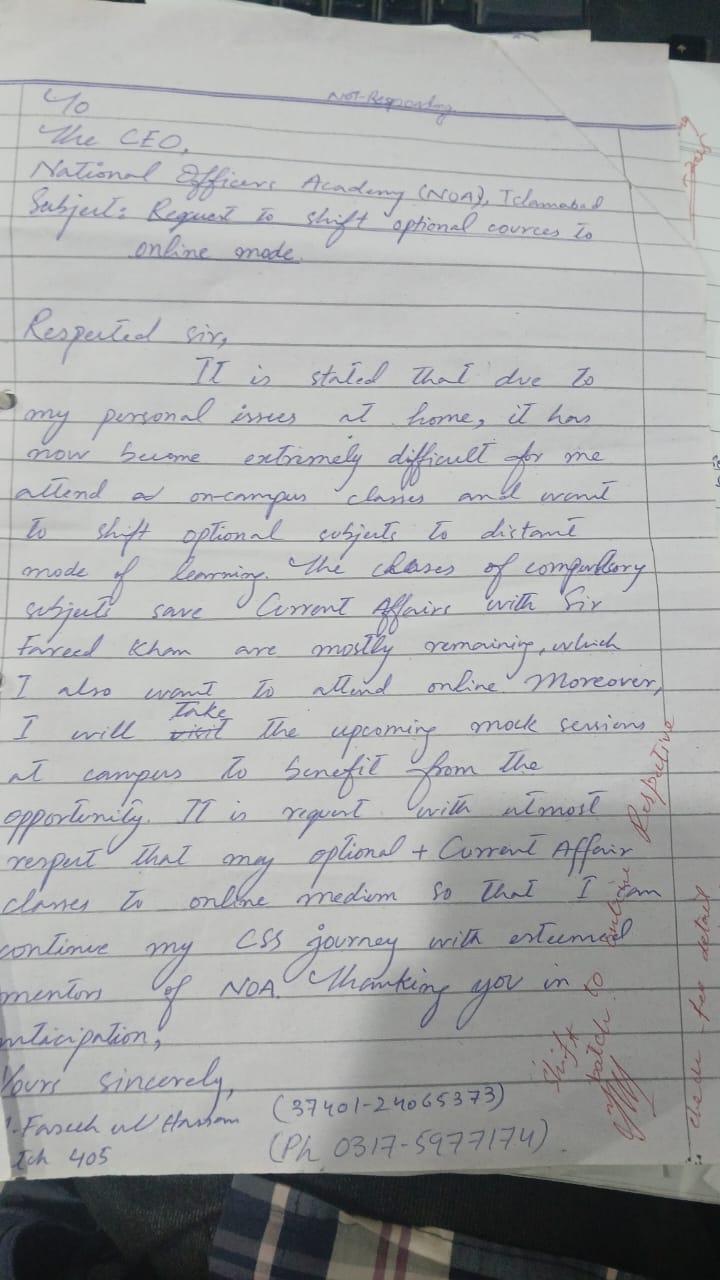 Not-Responding
To
The CEO,
National Officers Academy (NOA), Islamabad
Subject: Request to shift optional cources to
online mode.
Respected sir,
It is stated that due to
my personal issues at home, it has
now become extremely difficult for me
attend on-campus classes and want
to shift optional subjects to distant
mode of learning. The classes of compulsory
subjects save Current Affairs with Sir
Fareed Khan are mostly remaining, which
I also want to attend online. Moreover,
I will take the upcoming mock sessions
at campus to benefit from the
opportunity. It is request with utmost
respect that may optional + Current Affair
classes to online medium so that I can
continue my CSS journey with esteemed
mentors of NOA. Thanking you in
nticipation,
Yours sincerely,
Faseeh ul Hassan (37401-24065373)
tch 405 (Ph 0317-5977174).
Shift to online Respective
batch
check fee detail